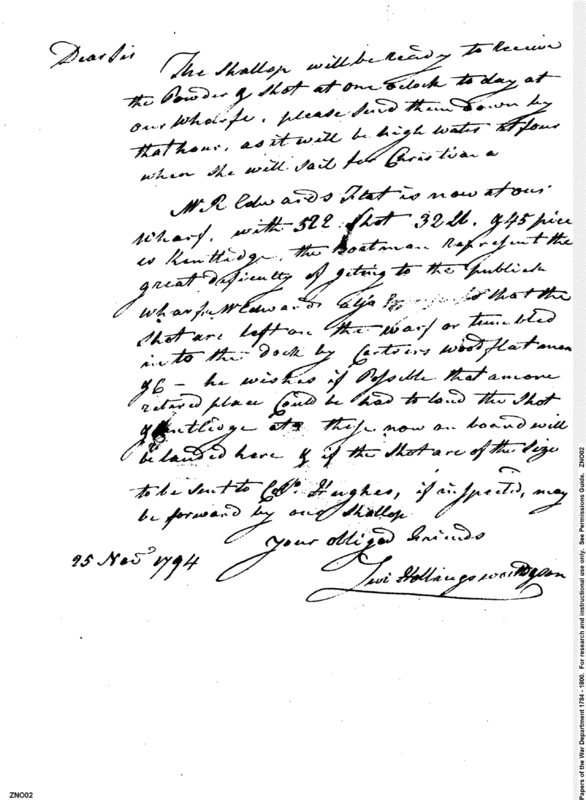 Dear Sir
The Shallop will be ready to Receive
the Powder & Shot at one oClock to day at
our Wharfe, please Send them down by
that hour, as it will be high water at four
when She will Sail for Christiana
Mr R Edwards Flat is now at our
Wharf, with 522 Shot 32 lb. & 45 piece
is Kentledge, the Boatman represent the
great dificulty of geting to the publick
wharf, Mr Edwards also is that the
Shot are left on the warf or tumbled
in to the Dock by Carters wood flat men
&c – he wishes if Possible that a more
retired place Could be had to land the Shot
& Kentledge at these now on board will
be landed here & if the Shot are of the Size
to be sent to Hughes, if inspected, may
be forward by our Shallop
Your obliged Friends
25 Novr 1794
Levi Hollingsworth & Son
Papers of the War Department 1784 - 1800. For research and instructional use only. See Permissions Guide. ZNO02
ZNO02